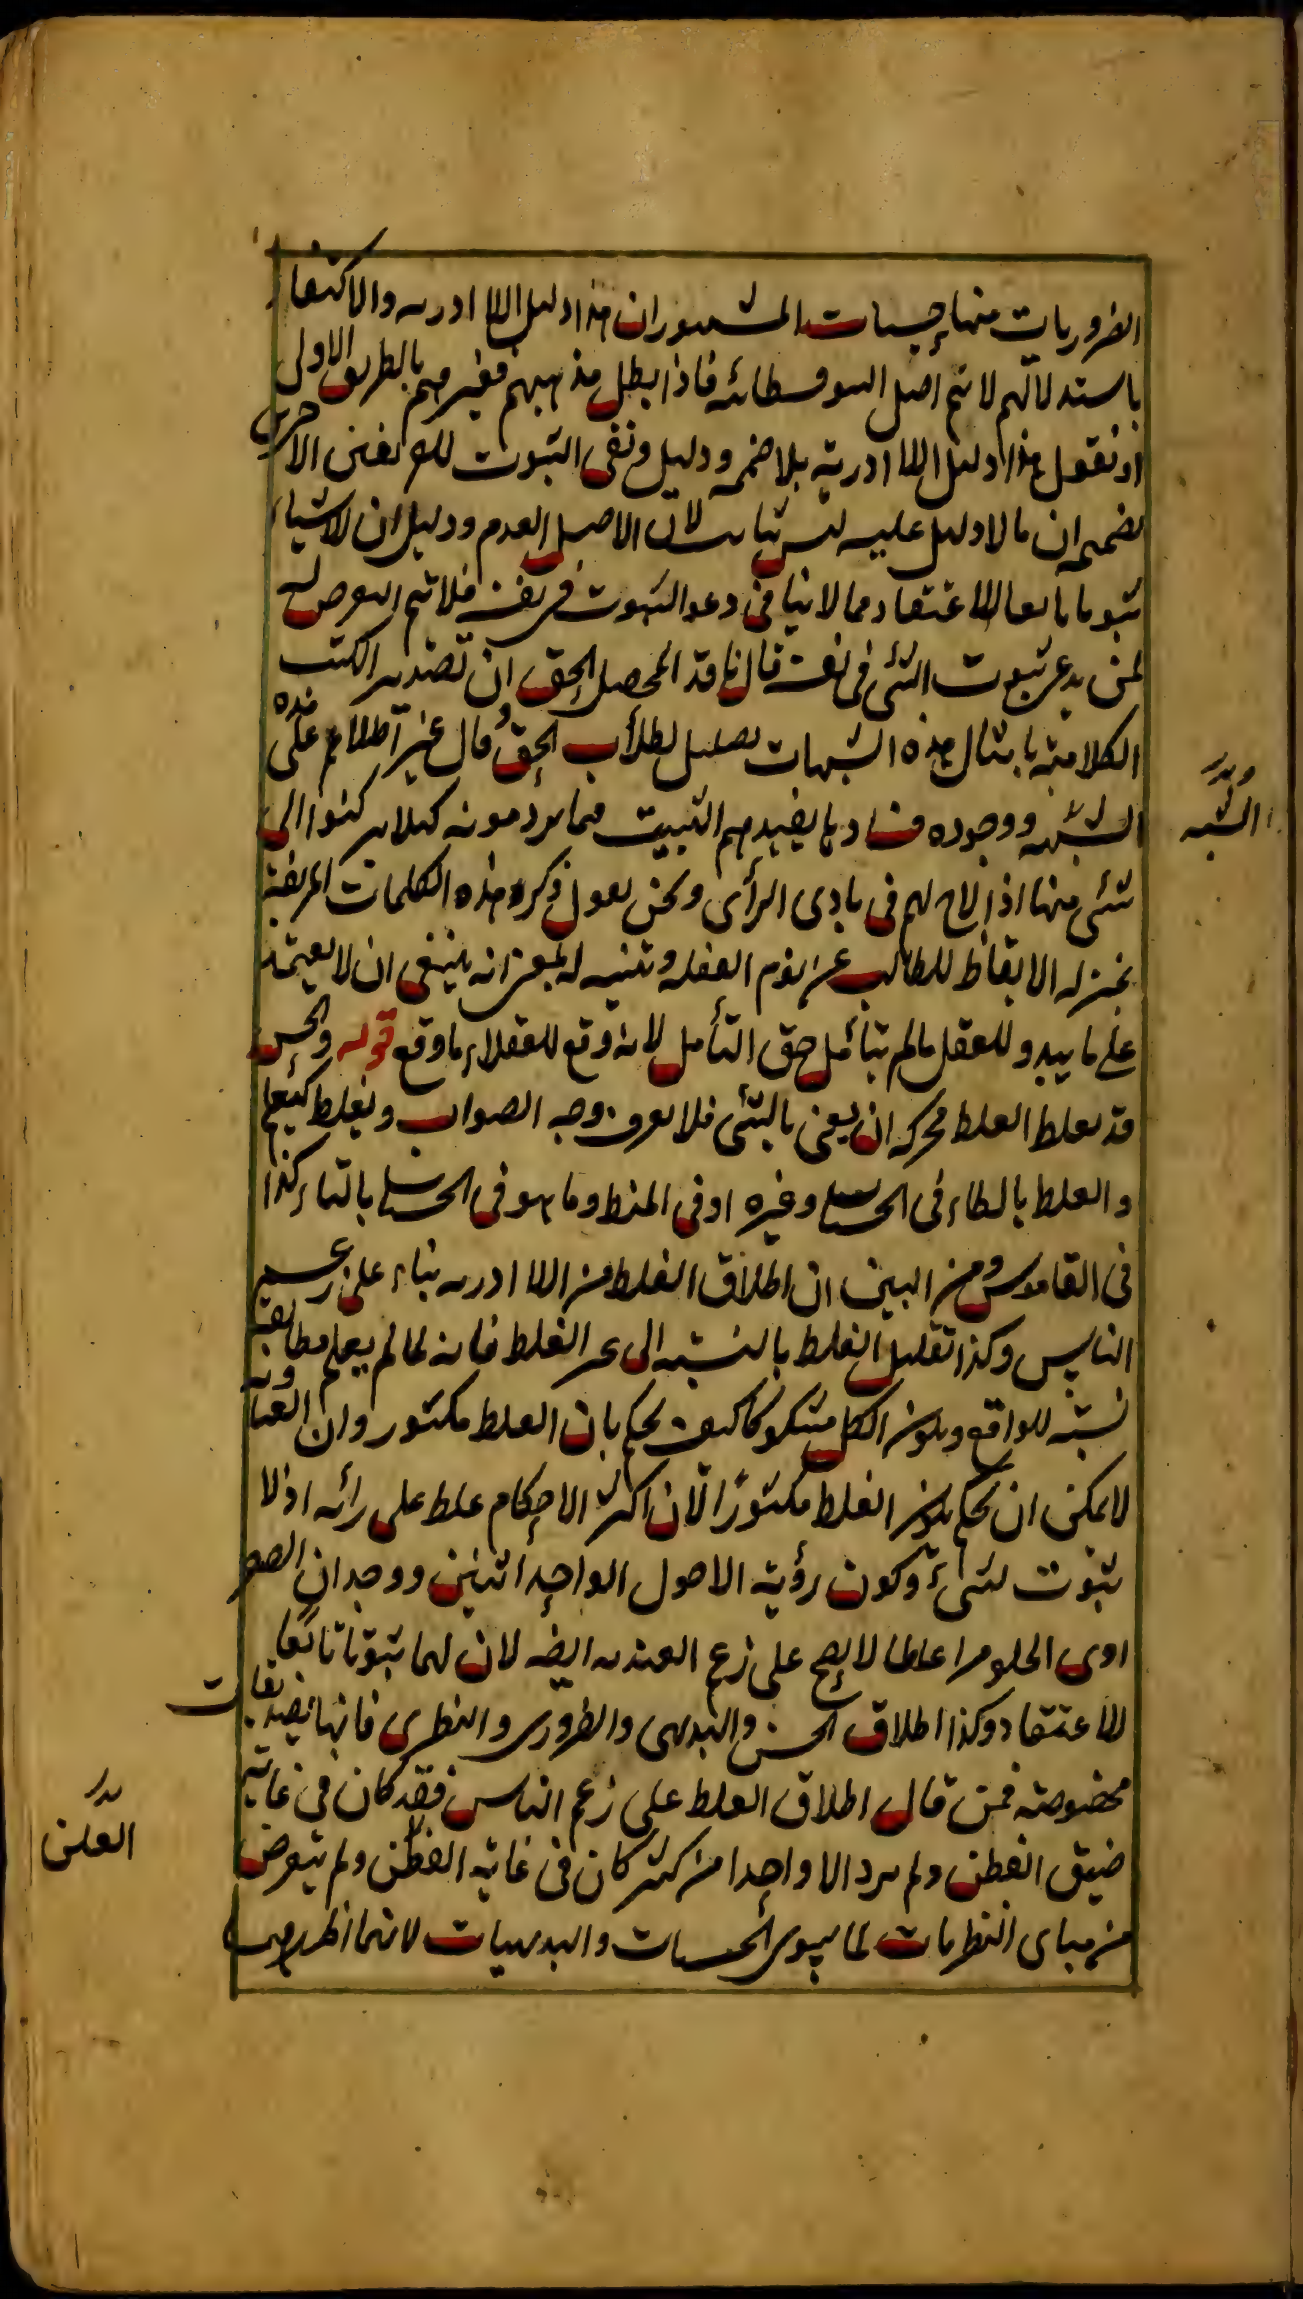 الضروريات منها حسيات المشهور ان هذا دليل اللا ادريه والاكتفاء
باستدلالهم لانهم اصل السوفسطائيه فاذا بطل مذهبهم فغيرهم بالطريق الاولى
او نقول هذا دليل اللا ادرية بلا ضميمه ودليل نفى الثبوت للاخريين
بضميمه ان ما لا دليل عليه ليس بثابت لان الاصل العدم ودليل ان للاشياء
ثبوتا تابعا للاعتقاد مما لا ينافى دعوى الثبوت فى نفسه فلا يتم التعرض له
لمن يدعى ثبوت الشئ فى نفسه قال ناقد المحصل الحق ان تصدير الكتب
الكلامية بامثال هذه الشبهات تضليل لطلاب الحق وقال غيره اطلاعهم على هذه
الشبه ووجوه فسادها يفيدهم التثبيت فيما يرومونه كيلا يركنوا الى
شئ منها اذا لاح لهم فى بادى الرأى ونحن نقول ذكر هذه الكلمات المزيفة
بمنزله الايقاظ للطالب عن نوم الغفله وتنبيه له انه ينبغى ان لا يعتمد
على ما يبدو للعقل ما لم يتأمل حق التأمل لانه وقع للعقلاء ما وقع قوله والحس
قد يغلط الغلط محركه ان يعنى بالشئ فلا يعرف وجه الصواب ويغلط كيعلم
والغلط بالطاء فى الحساب وغيره او فى المنطق وما هو فى الحساب بالتاء كذا
فى القاموس ومن البين ان اطلاق الغلط من اللا ادريه بناء على زعم
الناس وكذا تقليل الغلط بالنسبه الى غير الغلط فانه لما لم يعلم مطابقة
نسبة للواقع ويكون الكل مشكوكا كيف يحكم بان الغلط مكثور وان العناديه
لا يمكن ان يحكم بكون الغلط مكثورًا لان اكثر الاحكام غلط على رأيه اذ لا
ثبوت لشئ وكون رؤية الاحول الواحد اثنين ووجدان الصفراوى
الحلو مرا غلطا لا يصح على زعم العنديه ايضا لان لهما ثبوتا تابعا
للاعتقاد وكذا اطلاق الحسى والبديهى والضرورى والنظرى فانها تصديقات
مخصوصة فمن قال اطلاق الغلط على زعم الناس فقد كان فى غاية
ضيق العطن ولم يرد الا واحدا من كثير كان فى غاية الفطن ولم يتعرض
من مبادى النظريات لما سوى الحسيات والبديهيات لانهما اظهر
بدل
الشبه
بدل
العطن